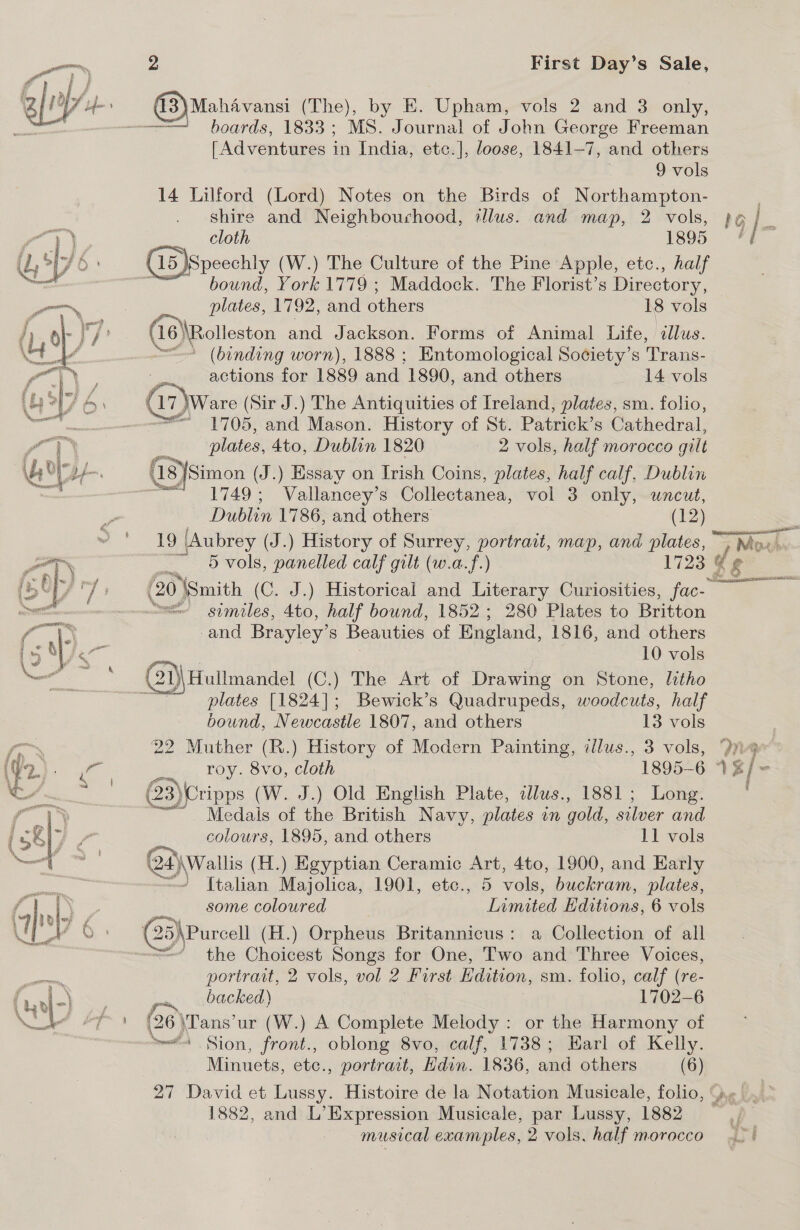 2 First Day's Sale,
13 Mahávansi (The), by E. Upham, vols 2 and 3 only,
boards, 1833 ; MS. Journal of John George Freeman
[Adventures in India, etc.], loose, 1841–7, and others
9 vols
14 Lilford (Lord) Notes on the Birds of Northampton-
shire and Neighbourhood, illus. and map, 2 vols,
cloth 1895
15 Speechly (W.) The Culture of the Pine Apple, etc., half
bound, York 1779 ; Maddock. The Florist's Directory,
plates, 1792, and others 18 vols
16 Rolleston and Jackson. Forms of Animal Life, illus.
(binding worn), 1888 ; Entomological Society's Trans-
actions for 1889 and 1890, and others 14 vols
17 Ware (Sir J.) The Antiquities of Ireland, plates, sm. folio,
1705, and Mason. History of St. Patrick's Cathedral,
plates, 4to, Dublin 1820 2 vols, half morocco gilt
18 Simon (J.) Essay on Irish Coins, plates, half calf, Dublin
1749 ; Vallancey's Collectanea, vol 3 only, uncut,
Dublin 1786, and others (12)
19 Aubrey (J.) History of Surrey, portrait, map, and plates,
5 vols, panelled calf gilt (w.a.f.) 1723
20 Smith (C. J.) Historical and Literary Curiosities, fac-
similes, 4to, half bound, 1852 ; 280 Plates to Britton
and Brayley's Beauties of England, 1816, and others
10 vols
21 Hullmandel (C.) The Art of Drawing on Stone, litho
plates [1824] ; Bewick's Quadrupeds, woodcuts, half
bound, Newcastle 1807, and others 13 vols
22 Muther (R.) History of Modern Painting, illus., 3 vols,
roy. 8vo, cloth 1895–6
23 Cripps (W. J.) Old English Plate, illus., 1881 ; Long.
Medals of the British Navy, plates in gold, silver and
colours, 1895, and others 11 vols
24 Wallis (H.) Egyptian Ceramic Art, 4to, 1900, and Early
Italian Majolica, 1901, etc., 5 vols, buckram, plates,
some coloured Limited Editions, 6 vols
25 Purcell (H.) Orpheus Britannicus : a Collection of all
the Choicest Songs for One, Two and Three Voices,
portrait, 2 vols, vol 2 First Edition, sm. folio, calf (re-
backed) 1702–6
26 Tans'ur (W.) A Complete Melody : or the Harmony of
Sion, front., oblong 8vo, calf, 1738 ; Earl of Kelly.
Minuets, etc., portrait, Edin. 1836, and others (6)
27 David et Lussy. Histoire de la Notation Musicale, folio,
1882, and L'Expression Musicale, par Lussy, 1882
musical examples, 2 vols, half morocco